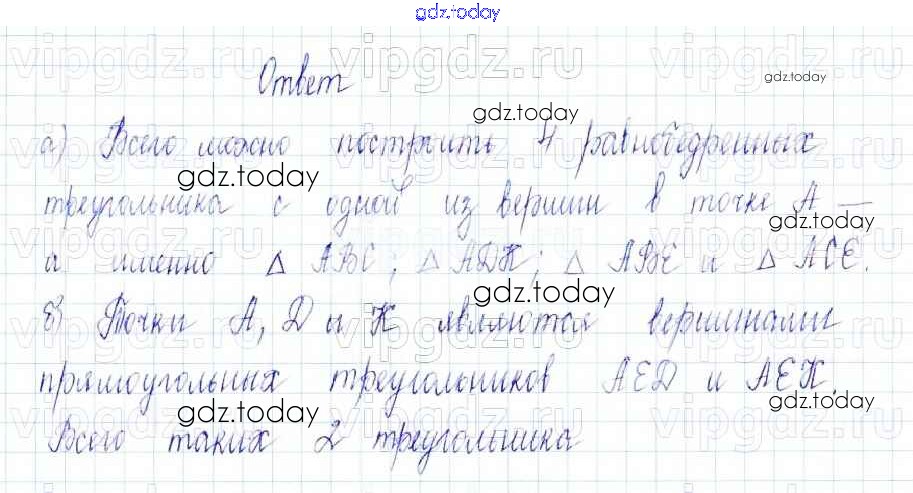 gdz.today
vipgdz.ru vipgdz.ru vipgdz.ru vipgdz.ru
Ответ
gdz.today
gdz.today
а) Всего можно построить 4 равнобедренных
gdz.today
треугольника с одной из вершин в точке А —
gdz.today
а именно △ АВС; △ АДК; △ АВЕ и △ АСЕ.
gdz.today
б) Точки А, D и К являются вершинами
прямоугольных треугольников АЕD и АЕК.
gdz.today
gdz.today
Всего таких 2 треугольника